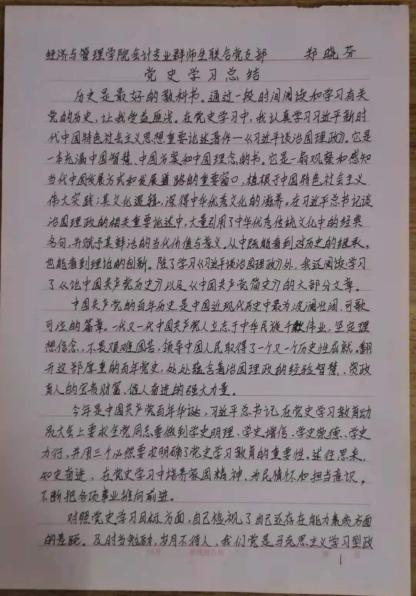 经济与管理学院会计专业群师生联合党支部 郑晓芬
党史学习总结
历史是最好的教科书。通过一段时间阅读和学习有关
党的历史,让我受益匪浅。在党史学习中,我认真学习习近平新时
代中国特色社会主义思想重要论述著作—《习近平谈治国理政》。它是
一本充满中国智慧、中国方案和中国理念的书。它是一扇观察和感知
当代中国发展方式和发展道路的重要窗口,植根于中国特色社会主义
伟大实践,其文化逻辑,深得中华优秀文化的滋养。在习近平总书记谈
治国理政的相关重要论述中,大量引用了中华优秀传统文化中的经典
名句,并赋予其鲜活的当代价值与意义。从中既能看到对历史的继承,
也能看到理论的创新。除了学习《习近平谈治国理政》外,我还阅读学习
了《论中国共产党历史》以及《中国共产党简史》的大部分文章。
中国共产党的百年历史是中国近现代历史中最为波澜壮阔、可歌
可泣的篇章。一代又一代中国共产党人立志于中华民族千秋伟业,坚定理
想信念,不畏艰难困苦,领导中国人民取得了一个又一个历史性成就。翻
开这部厚重的百年党史,处处蕴含着治国理政的经验智慧、资政
育人的宝贵财富、催人奋进的强大力量。
今年是中国共产党百年华诞,习近平总书记在党史学习教育动
员大会上要求全党同志要做到学史明理、学史增信、学史崇德、学史
力行,并用三个必然要求明确了党史学习教育的重要性。述往思来,
知史奋进,在党史学习中培养家国精神、为民情怀和担当意识,
不断把各项事业推向前进。
对照党史学习目标方面,自己感觉了自己还存在能力素质方面
的差距。及时当勉励,岁月不待人,我们党是马克思主义学习型政
1